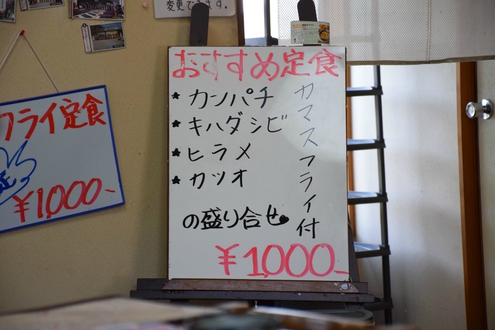 変更できます。
おすすめ定食
★ カンパチ
★ キハダシビ
★ ヒラメ
★ カツオ
の盛り合せ
カマスフライ付
¥1000-
フライ定食
¥1,000-